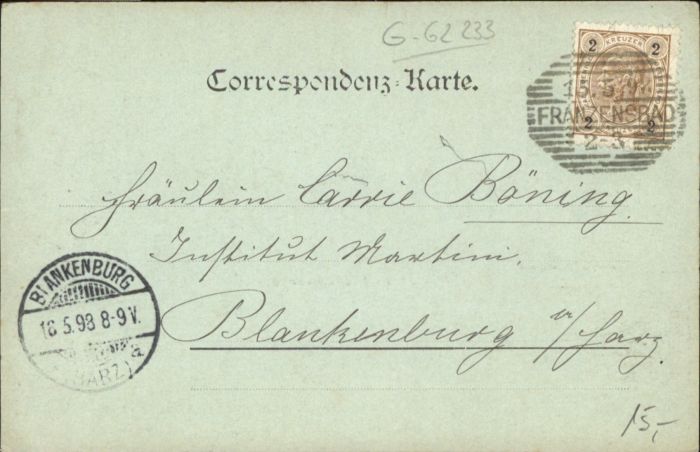 G-62 233
2 KREUZER 2
Correspondenz-Karte.
15.5.
FRANZENSBAD
2 2-3 2
Fräulein Carrie Böning.
Institut Martini.
Blankenburg a/Harz.
BLANKENBURG
16 5.98 8-9 V.
(HARZ) a
15,-